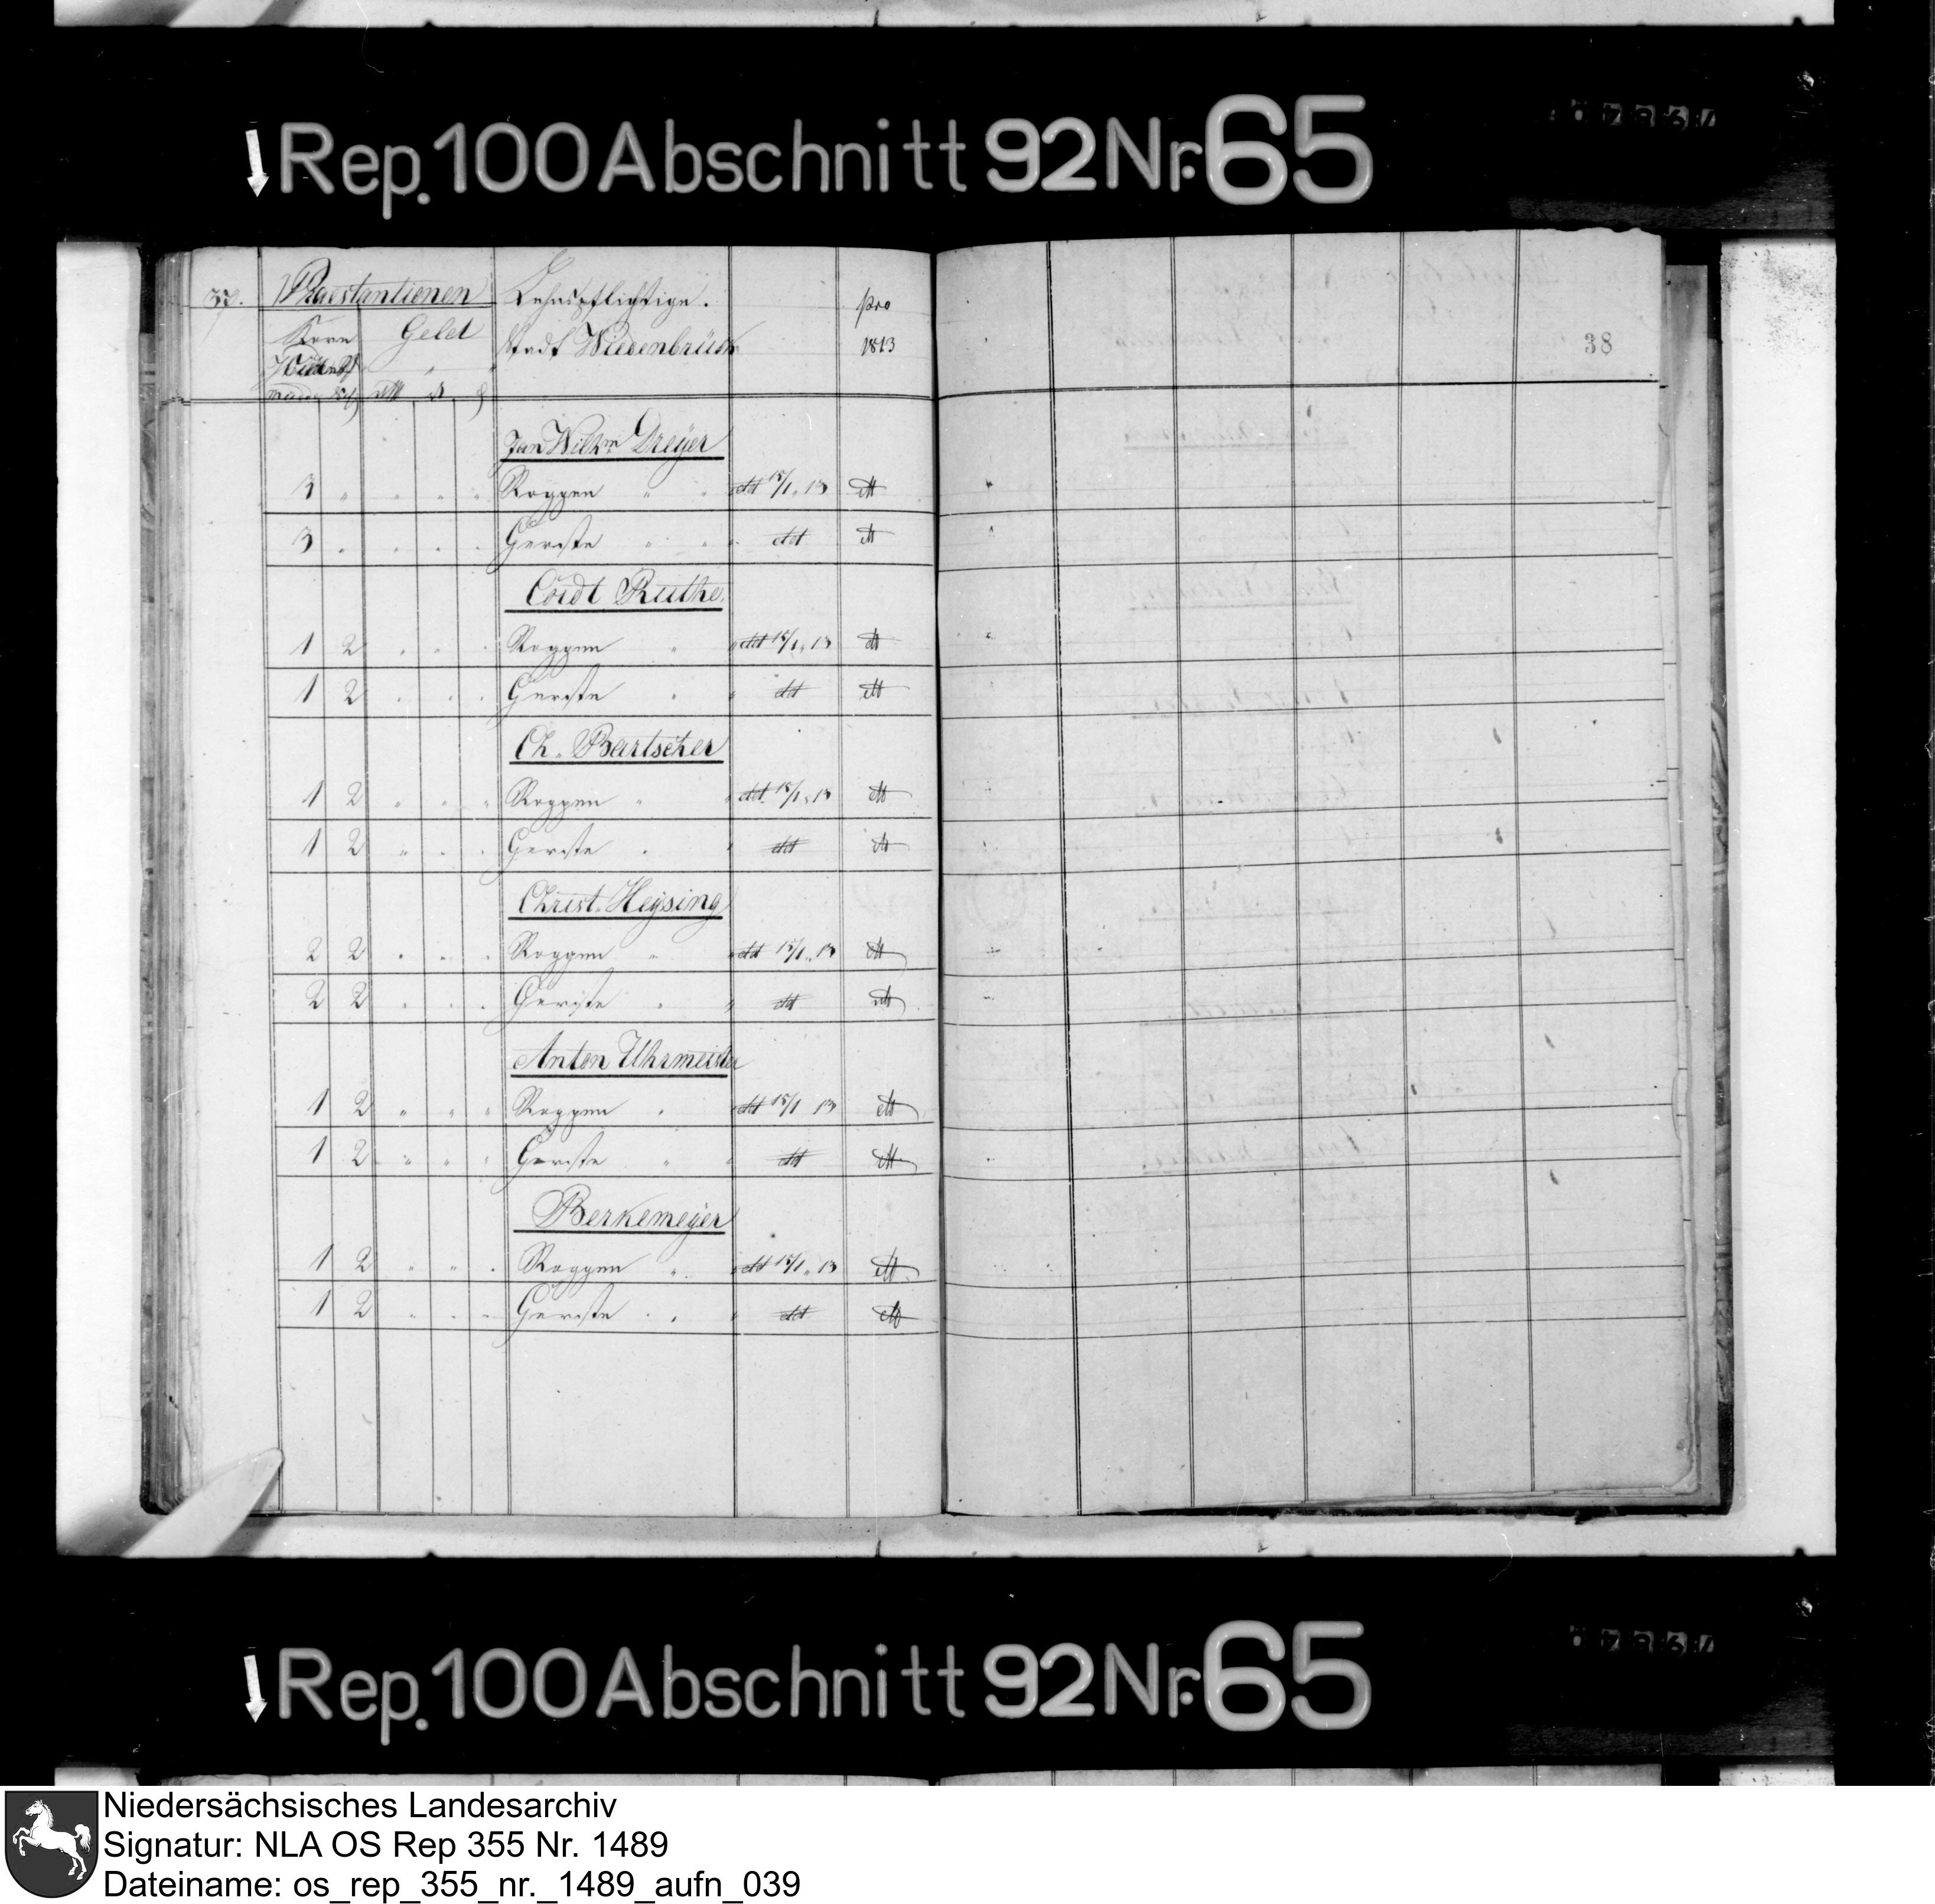 Rep. 100 Abschnitt 92 Nr. 65
37. Praestantionen Zehnpflichtige. pro
Korn Geld Stadt Wiedenbrück 1813
38
Jan Wilhm Dreyer
3 " " " " Roggen " " dd 15/1. 13 dt
3 " " " " Gerste " " " dd dt
Cordt Ruthe.
1 2 " " " Roggen " " dd 15/1. 13 dt
1 2 " " " Gerste " " dd dt
Ch. Bartscher
1 2 " " " Roggen " " dd 15/1. 13 dt
1 2 " " " Gerste " " dd dt
Christ. Heysing
2 2 " " " Roggen " " dd 15/1. 13 dt
2 2 " " " Gerste " " dd dt
Anton Uhrmeister
1 2 " " " Roggen " dd 15/1 13 dt
1 2 " " " Gerste " " dd dt
Berkemeyer
1 2 " " " Roggen " " dd 15/1. 13 dt
1 2 " " " Gerste " " " dd dt
Rep. 100 Abschnitt 92 Nr. 65
Niedersächsisches Landesarchiv
Signatur: NLA OS Rep 355 Nr. 1489
Dateiname: os_rep_355_nr._1489_aufn_039